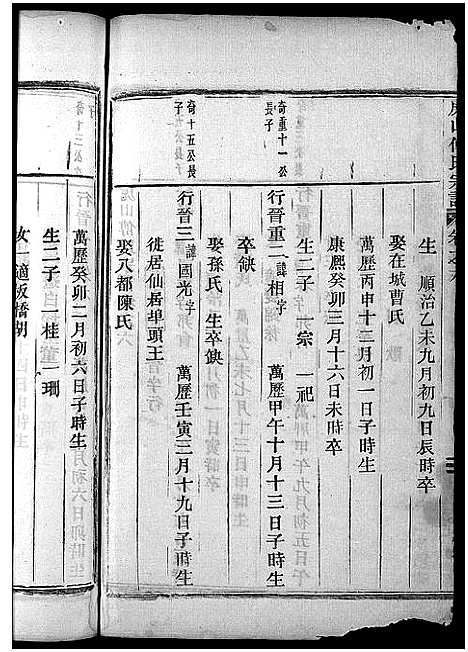 生　順治乙未九月初九日辰時卒
娶在城曹氏
萬歷丙申十二月初一日子時生
康熙癸卯三月十六日未時卒
生二子　一宗　一祀
奇重十一公
長子
行晉重二諱相字　萬歷甲午十月十三日子時生
卒缺
娶孫氏　生卒缺
奇十五公長
子
行晉三諱國光字　萬歷壬寅二月十九日子時生
徙居仙居埠頭王
娶八都陳氏
萬歷癸卯二月初六日子時生
生二子　一桂　一珊
女一適板橋胡